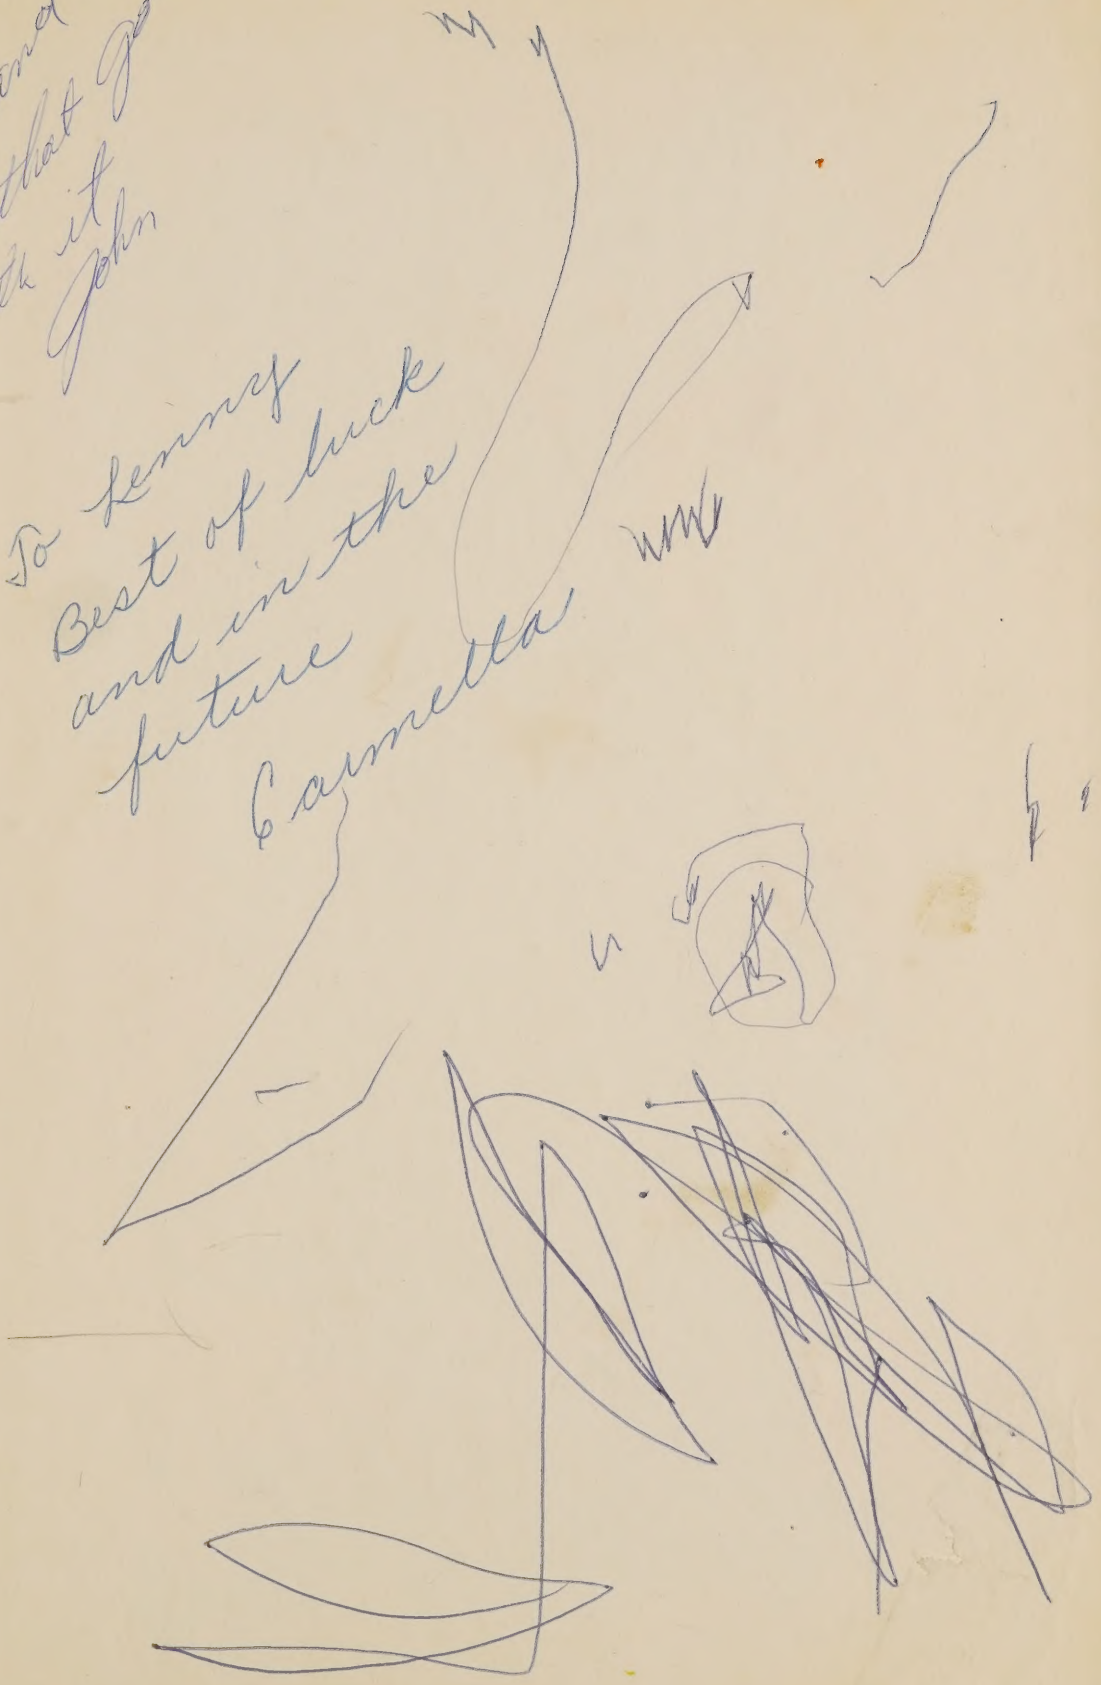 and
that go
it
John
To Lenny
Best of luck
and in the
future
Carmella